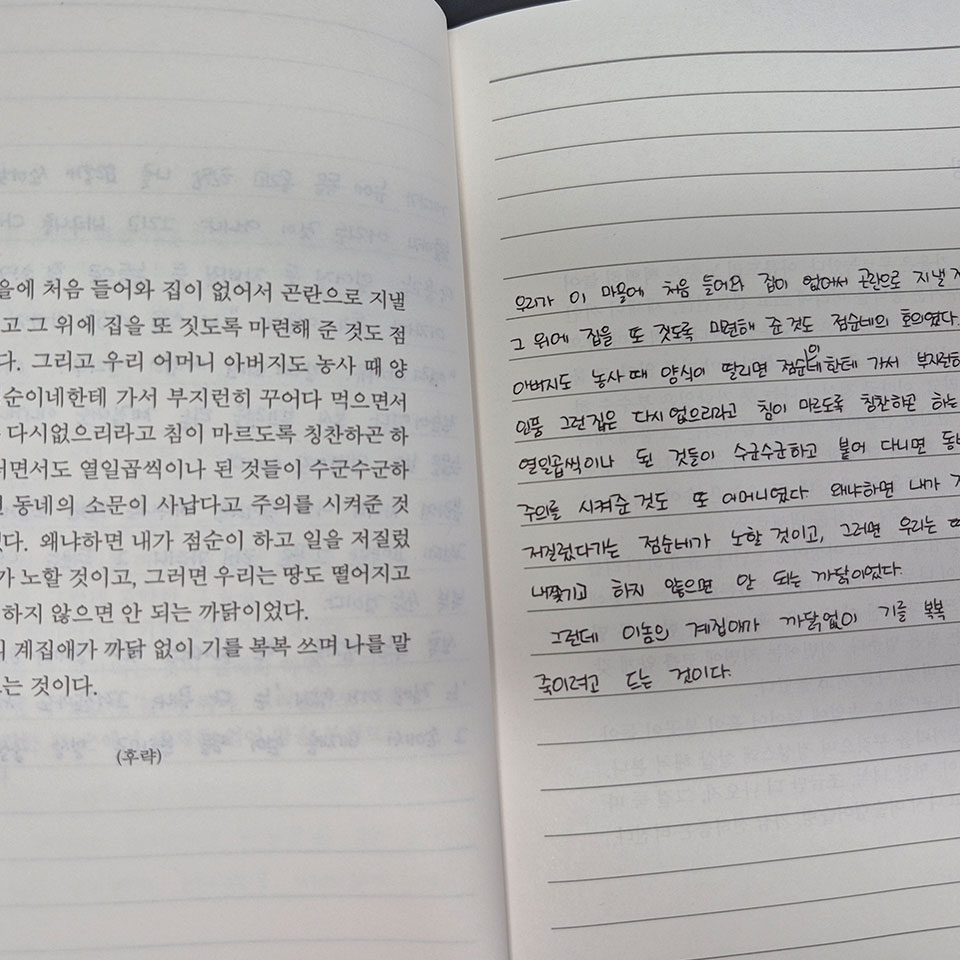 을에 처음 들어와 집이 없어서 곤란으로 지낼
고 그 위에 집을 또 짓도록 마련해 준 것도 점
다. 그리고 우리 어머니 아버지도 농사 때 양
순이네한테 가서 부지런히 꾸어다 먹으면서
다시없으리라고 침이 마르도록 칭찬하곤 하
러면서도 열일곱씩이나 된 것들이 수군수군하
동네의 소문이 사납다고 주의를 시켜준 것
다. 왜냐하면 내가 점순이 하고 일을 저질렀
가 노할 것이고, 그러면 우리는 땅도 떨어지고
하지 않으면 안 되는 까닭이었다.
계집애가 까닭 없이 기를 복복 쓰며 나를 말
는 것이다.
(후략)
우리가 이 마을에 처음 들어와 집이 없어서 곤란으로 지낼
그 위에 집을 또 짓도록 마련해 준 것도 점순네의 호의였다.
아버지도 농사 때 양식이 딸리면 점순이네한테 가서 부지런히
인품 그런 집은 다시 없으리라고 침이 마르도록 칭찬하곤 하는
열일곱씩이나 된 것들이 수군수군하고 붙어 다니면 동네
주의를 시켜준 것도 또 어머니였다. 왜냐하면 내가
저질렀다가는 점순네가 노할 것이고, 그러면 우리는
내쫓기고 하지 않으면 안 되는 까닭이었다.
그런데 이놈의 계집애가 까닭없이 기를 복복
죽이려고 드는 것이다.